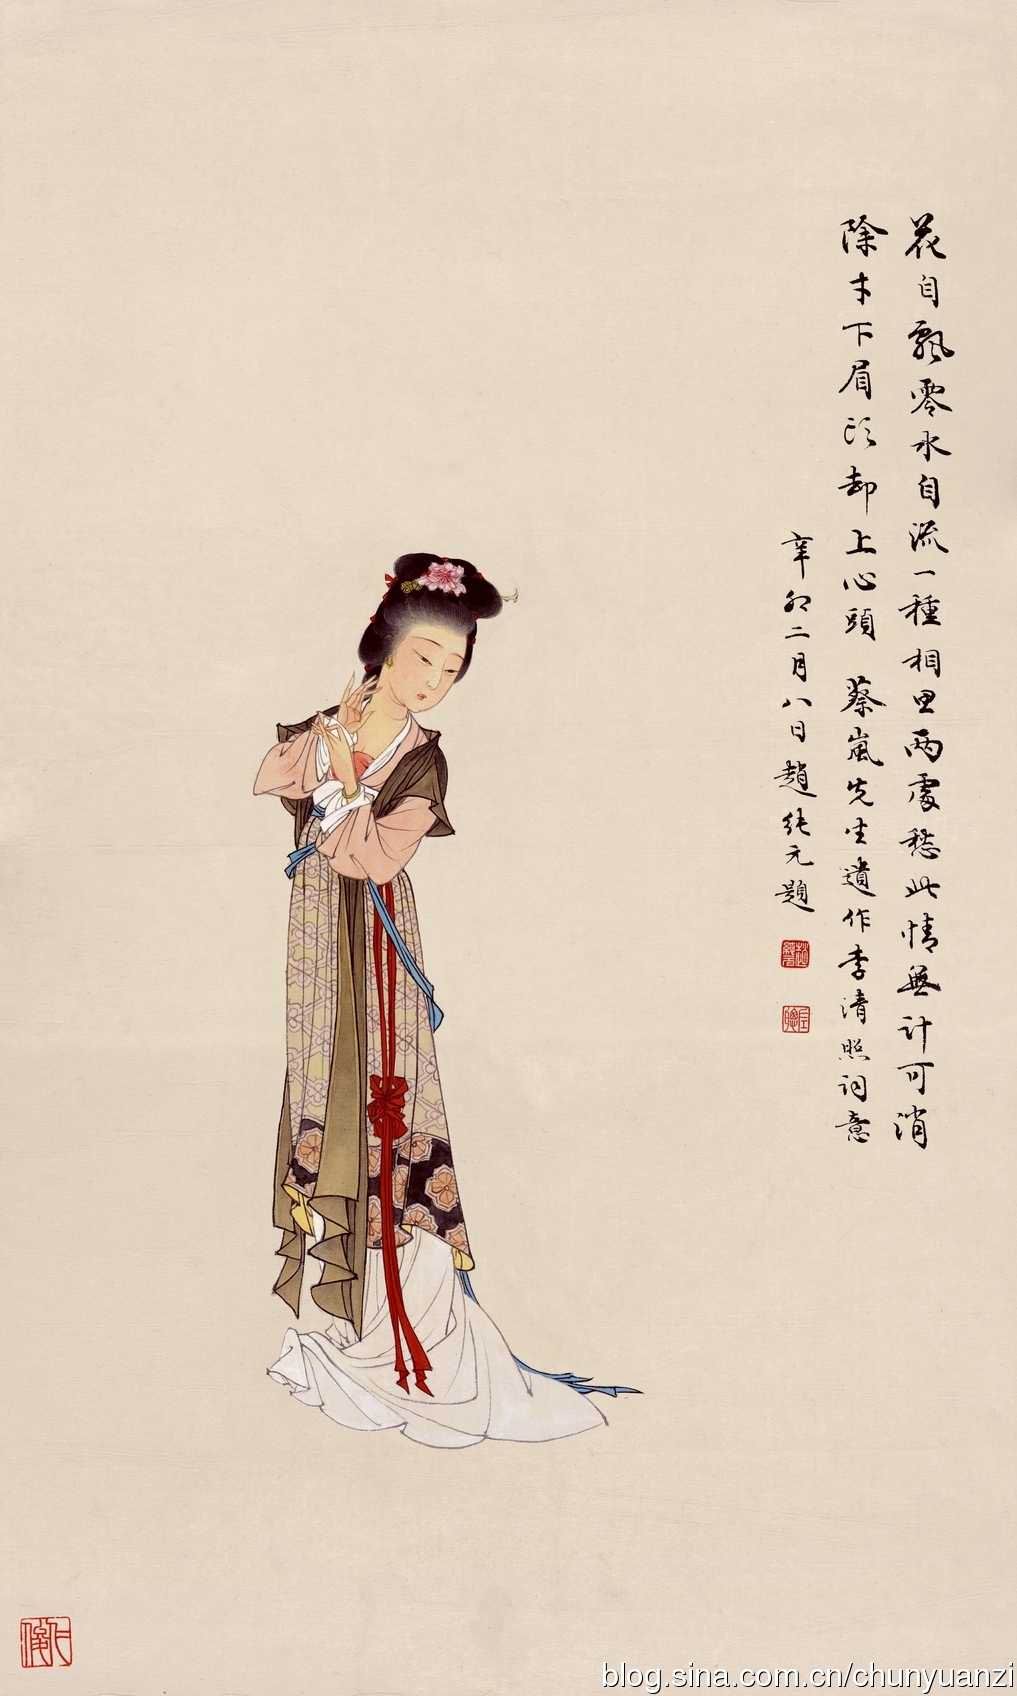 花自飄零水自流一種相思两處愁此情無计可消
除才下眉头却上心頭 蔡嵐先生遺作李清照词意
辛卯二月八日趙纯元題
blog.sina.com.cn/chunyuanzi